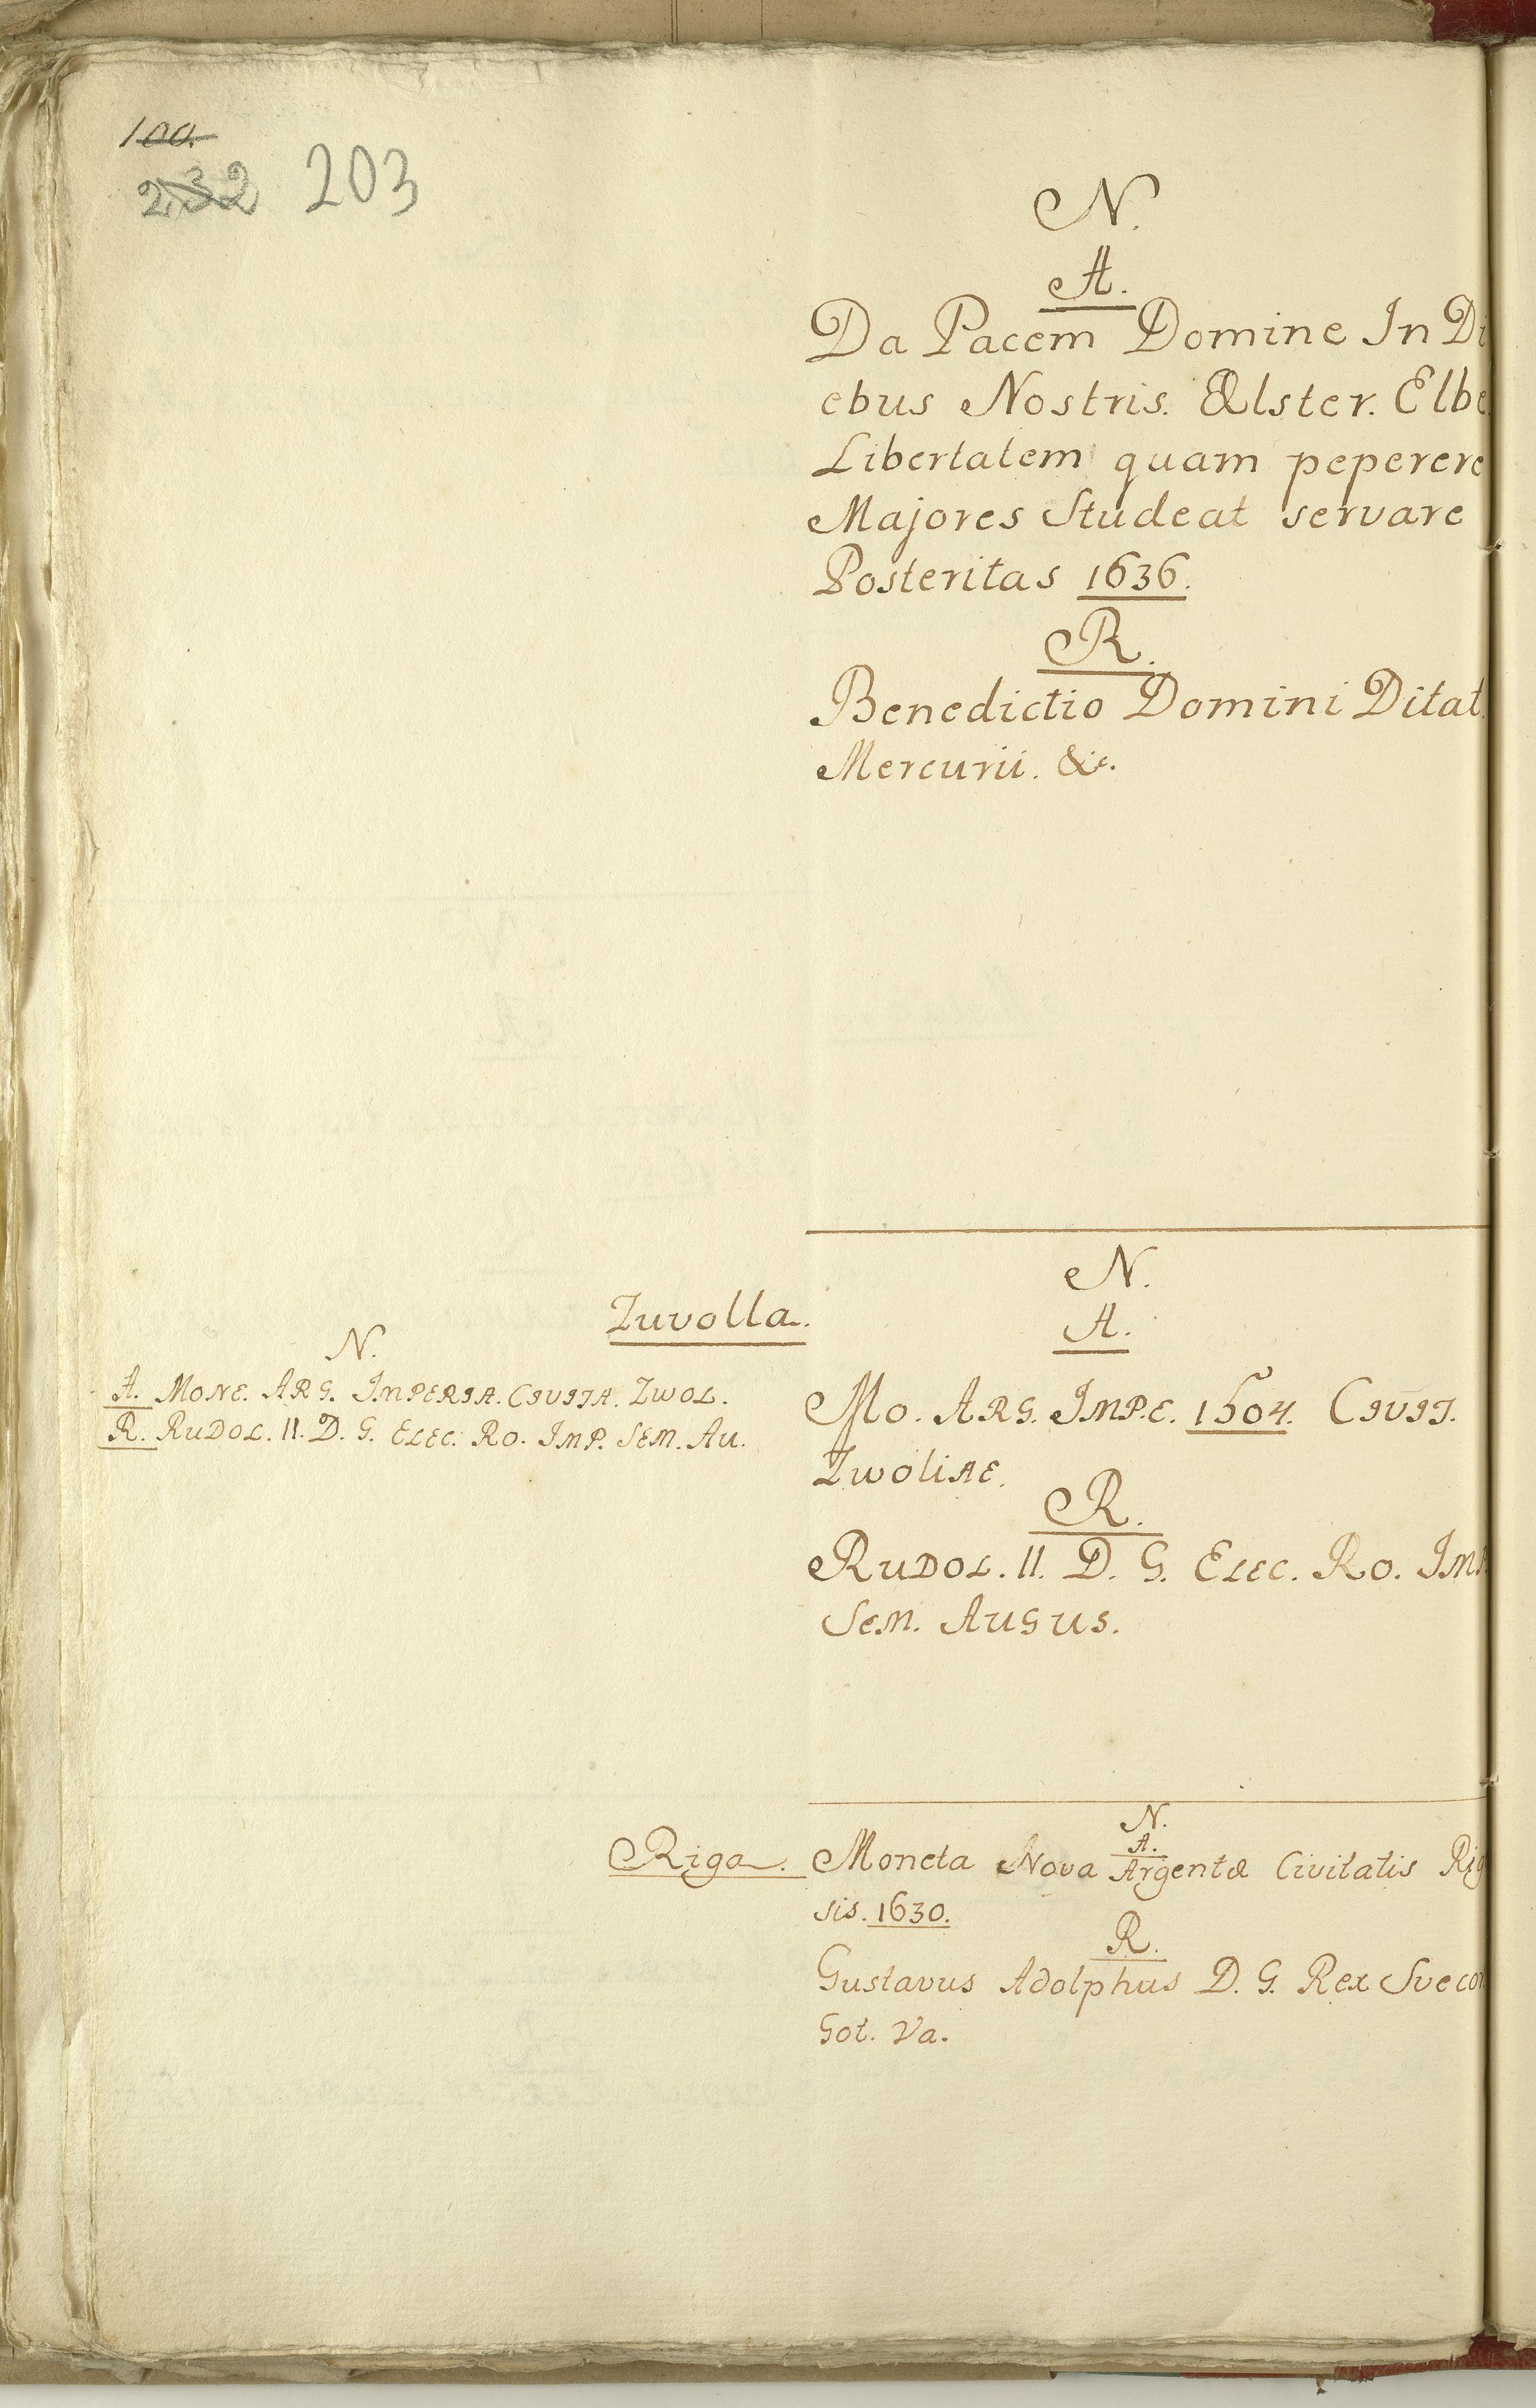 100.
232 203
N.
A.
Da Pacem Domine In Di
ebus Nostris. Alster. Elbe
Libertatem quam peperere
Majores Studeat servare
Posteritas 1636.
R.
Benedictio Domini Ditat.
Mercurii. &c.
Zuvolla.
N.
A. Mone. Arg. Imperia. Civita. Zwol.
R. Rudol. II. D. G. Elec. Ro. Imp. Sem. Au.
N.
A.
Mo. Arg. Imp.e. 1604. Civit.
Zwoliae.
R.
Rudol. II. D. G. Elec. Ro. Imp
Sem. Augus.
Riga.
N.
A.
Moneta Nova Argentæ Civitatis Rig
sis. 1630.
R.
Gustavus Adolphus D. G. Rex Svecor
Got. Va.